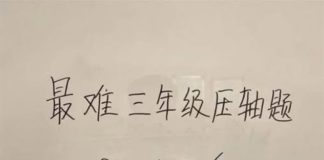 最难三年级压轴题